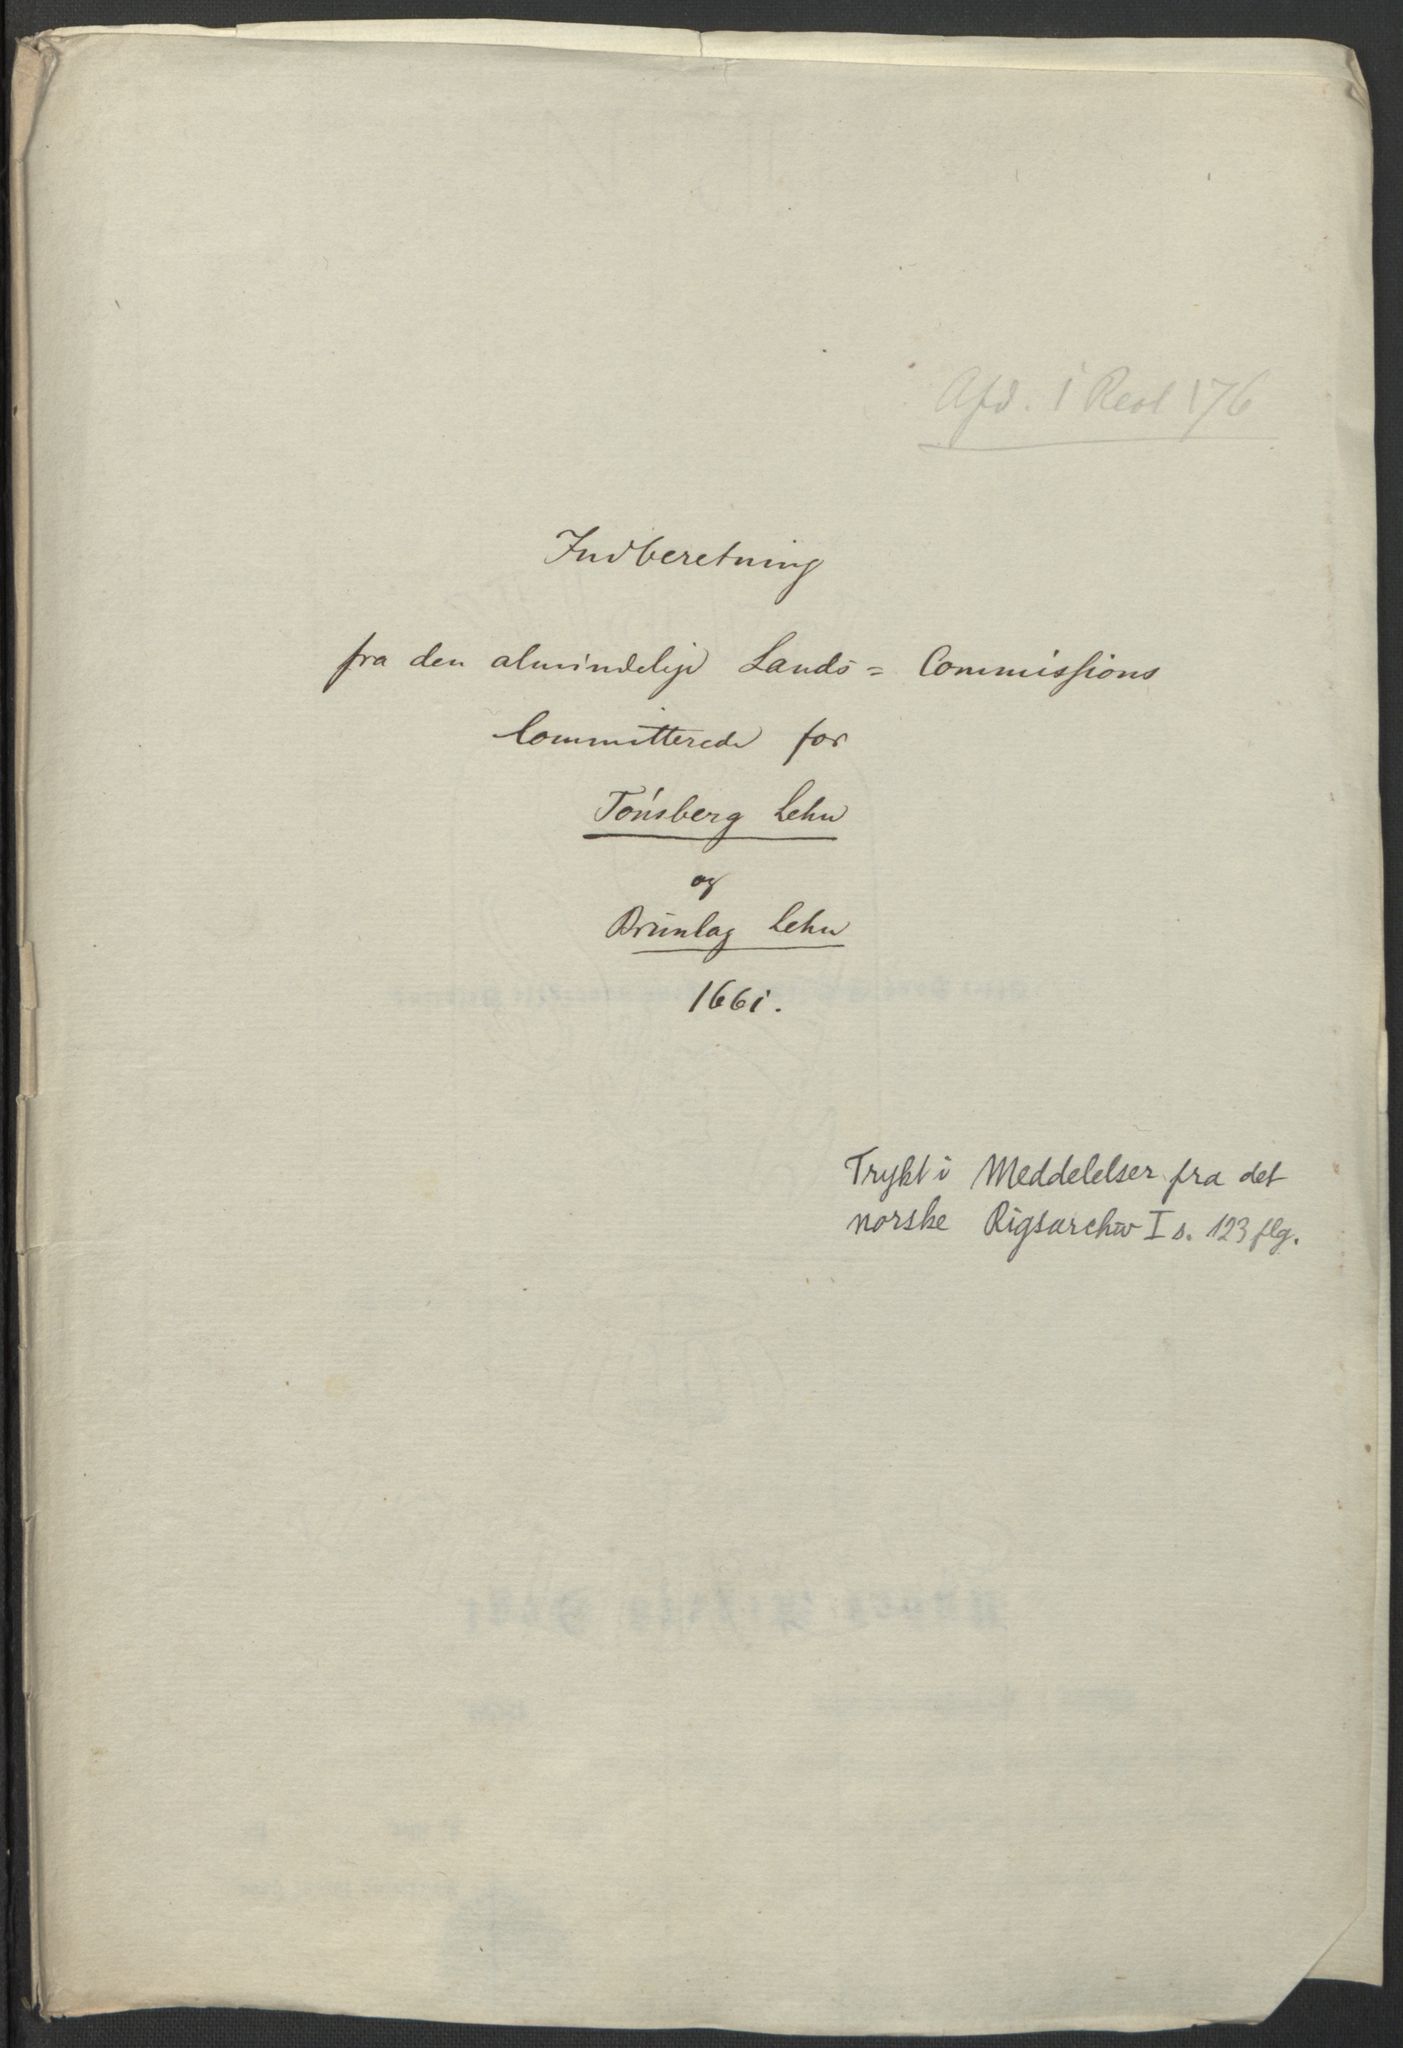 Afd. I Reol 176
Indberetning
fra den almindelige Lands = Commissions
Committerede for
Tönsberg Lehn
og
Brunlag Lehn
1661.
Trykt i Meddelelser fra det
norske Rigsarchiv I s. 123 flg.